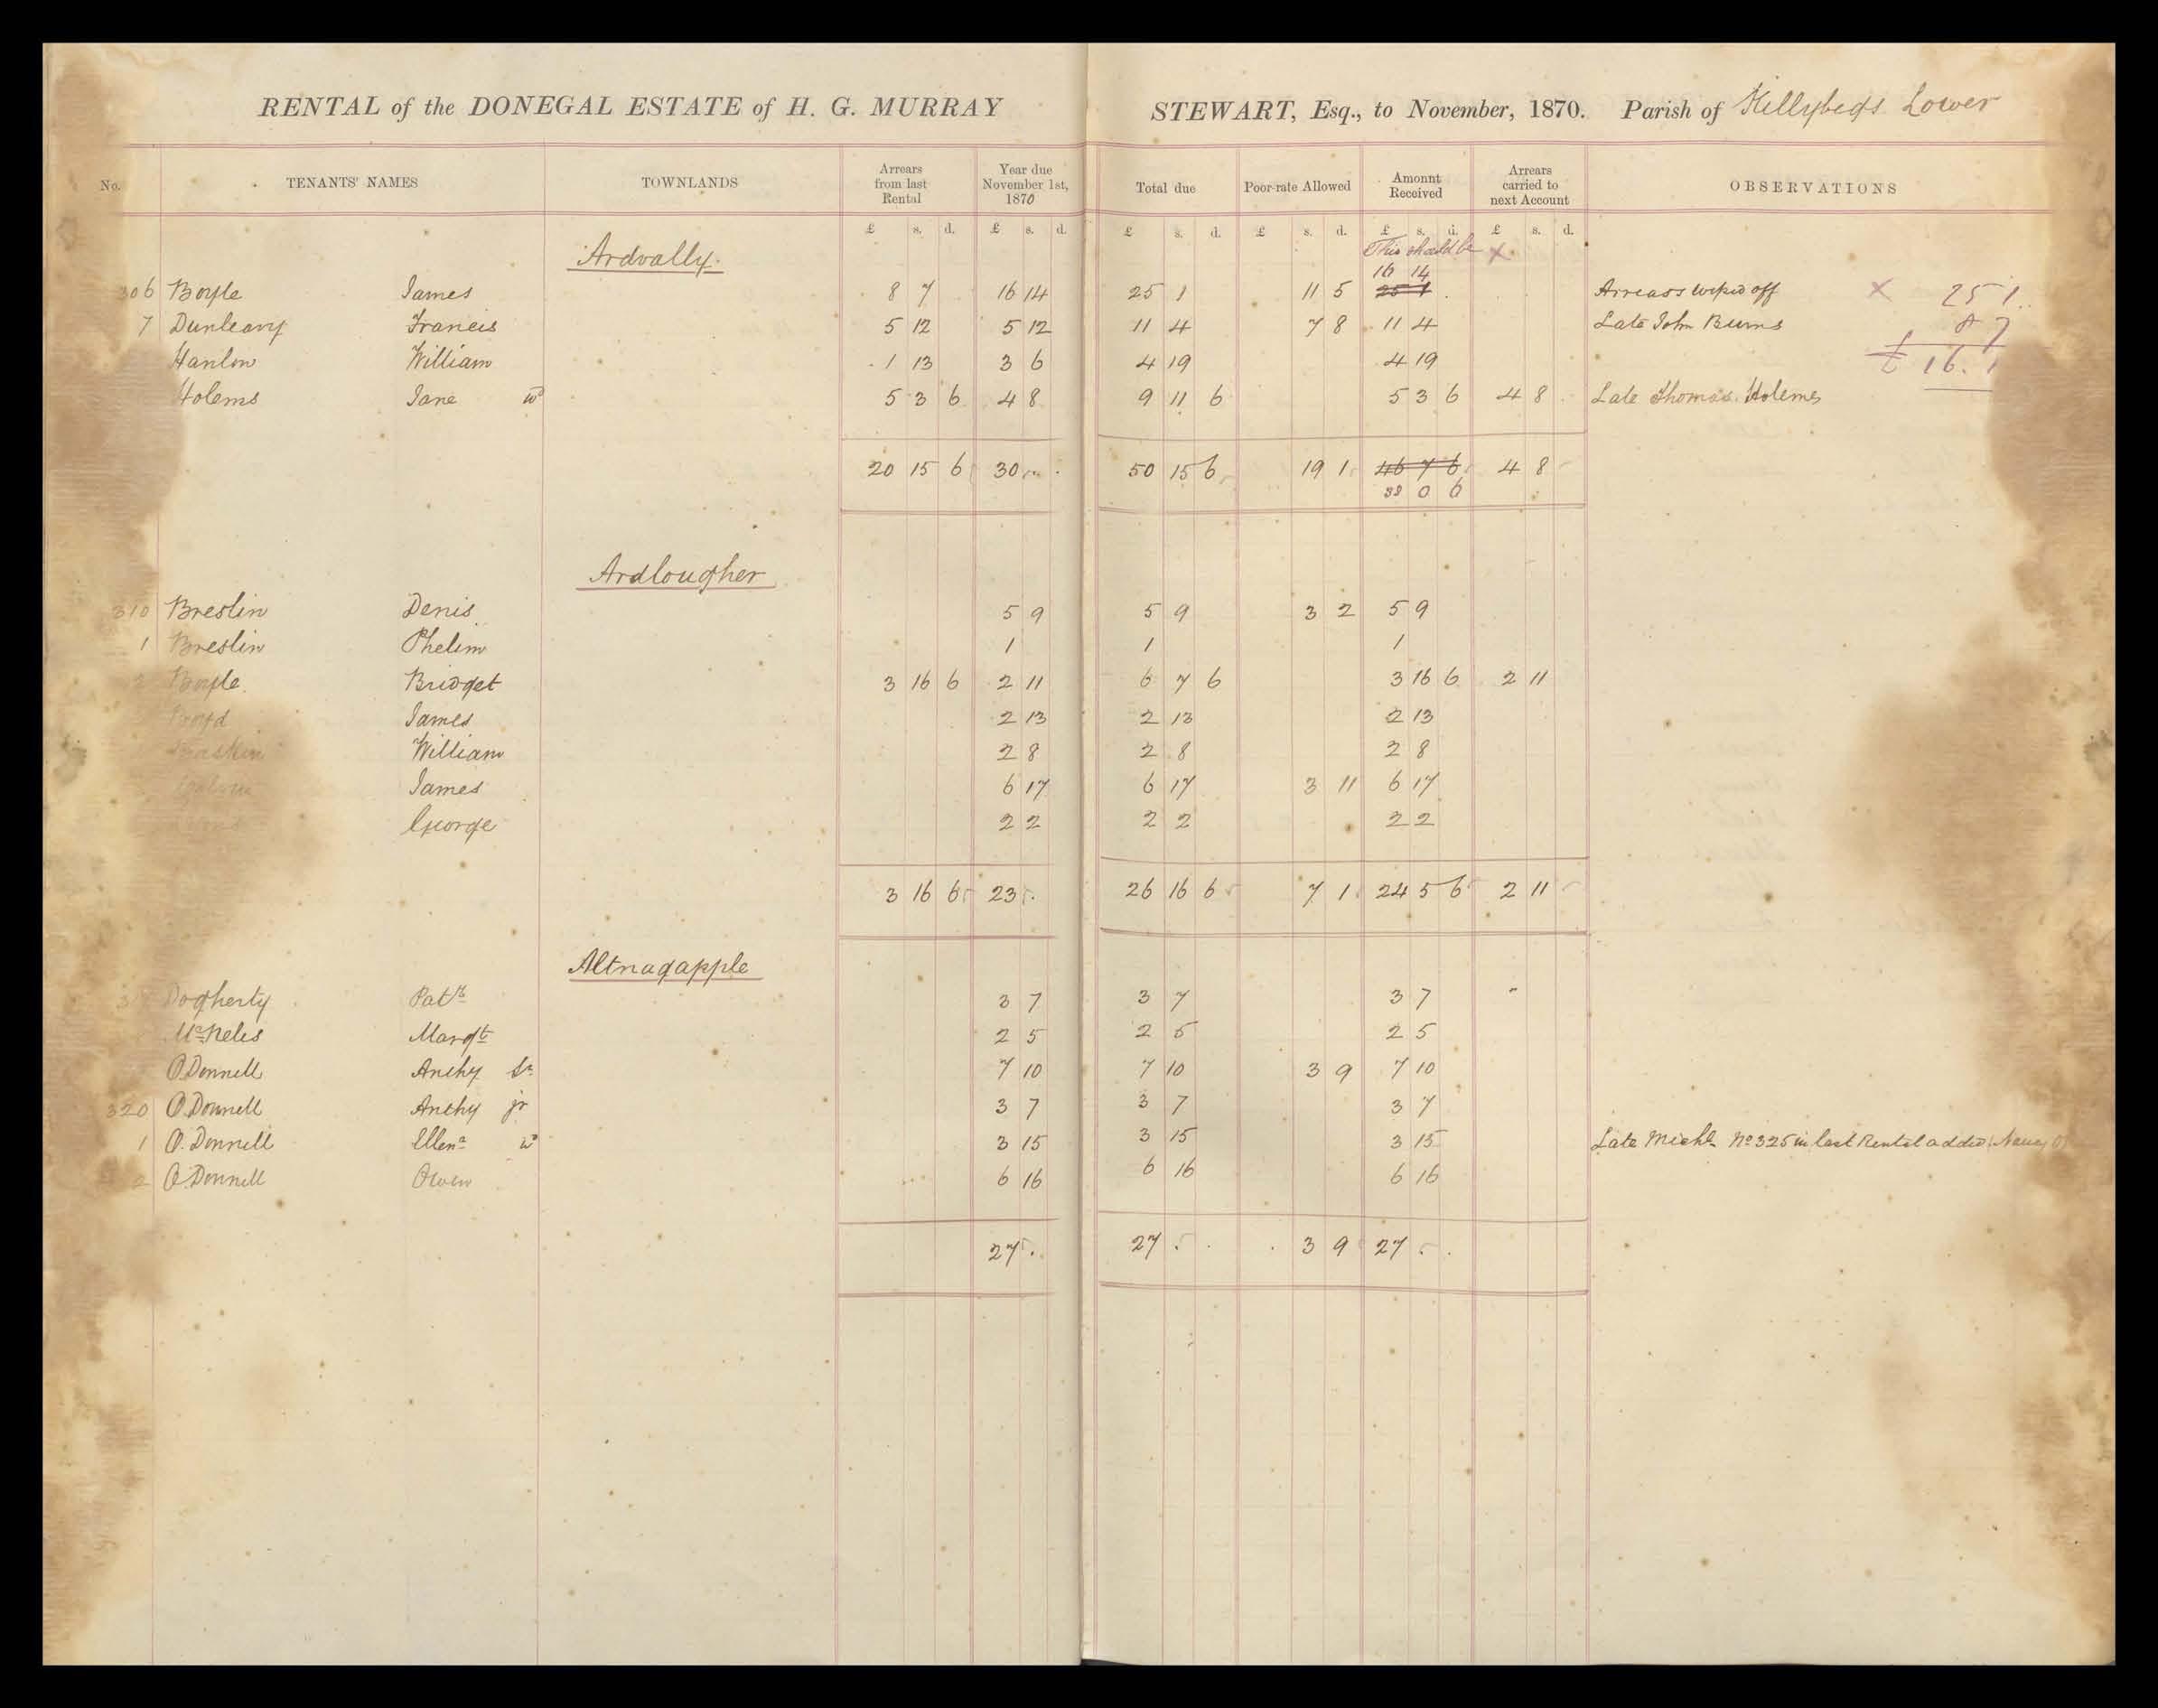 RENTAL of the DONEGAL ESTATE of H. G. MURRAY STEWART, Esq., to November, 1870. Parish of Killybegs Lower
No. TENANTS' NAMES TOWNLANDS Arrears from last Rental Year due November 1st, 1870 Total due Poor-rate Allowed Amount Received Arrears carried to next Account OBSERVATIONS
£ s. d. £ s. d. £ s. d. £ s. d. £ s. d. £ s. d.
Ardvally. This should be ×
16 14
306 Boyle James 8 7 16 14 25 1 11 5 25 1 Arrears wiped off × 25 1
7 Dunleavy Francis 5 12 5 12 11 4 7 8 11 4 Late John Burns 8 7
Hanlon William 1 13 3 6 4 19 4 19 £ 16. 1
Holems Jane wd 5 3 6 4 8 9 11 6 5 3 6 4 8 Late Thomas Holemes
20 15 6 30 50 15 6 19 1 46 7 6 4 8
38 0 6
Ardlougher
310 Breslin Denis 5 9 5 9 3 2 5 9
1 Breslin Phelim 1 1 1
2 Boyle Bridget 3 16 6 2 11 6 7 6 3 16 6 2 11
Boyd James 2 13 2 13 2 13
William 2 8 2 8 2 8
James 6 17 6 17 3 11 6 17
George 2 2 2 2 2 2
3 16 6 23 26 16 6 7 1 24 5 6 2 11
Altnagapple
Dogherty Patk 3 7 3 7 3 7
McNelis Margt 2 5 2 5 2 5
O'Donnell Anthy Sr 7 10 7 10 3 9 7 10
320 O'Donnell Anthy jr 3 7 3 7 3 7
1 O'Donnell Ellena wd 3 15 3 15 3 15 Late Michl No 325 in last Rental added Nancy
2 O'Donnell Owen 6 16 6 16 6 16
27 27 3 9 27